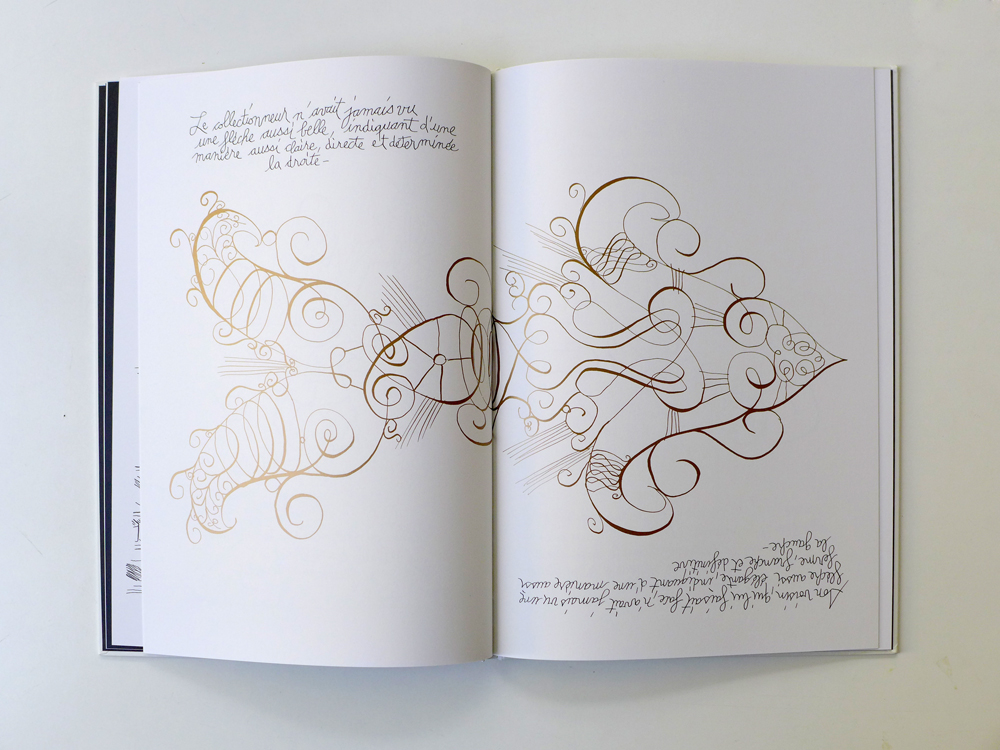 Le collectionneur n'avait jamais vu
une flèche aussi belle, indiquant d'une
manière aussi claire, directe et déterminée
la droite -
Son voisin, qui lui faisait face n'avait jamais vu une
flèche aussi élégante, indiquant d'une manière aussi
ferme, franche et définitive
la gauche -